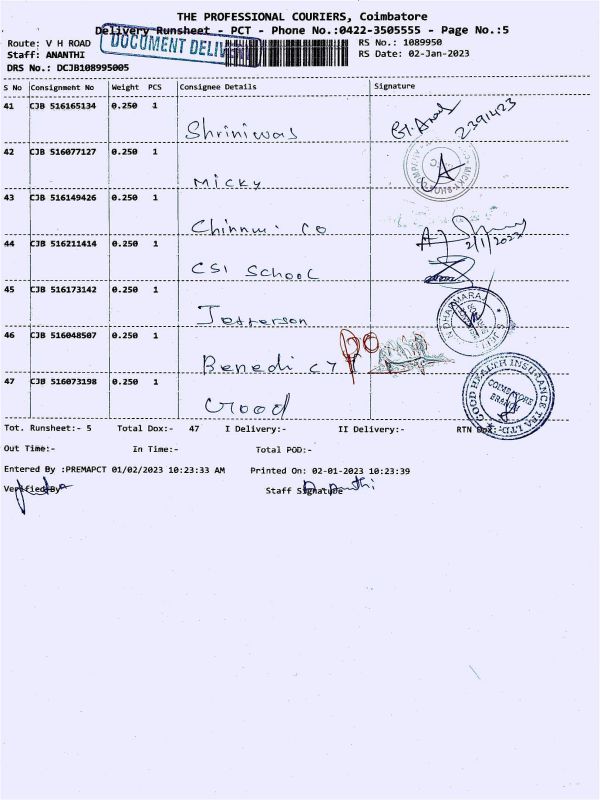 THE PROFESSIONAL COURIERS, Coimbatore
Delivery Runsheet - PCT - Phone No.:0422-3505555 - Page No.:5
DOCUMENT DELIV
Route: V H ROAD
RS No.: 1089950
Staff: ANANTHI
RS Date: 02-Jan-2023
DRS No.: DCJB108995005
S No Consignment No Weight PCS Consignee Details Signature
41 CJB 516165134 0.250 1
Shriniwas
2391423
42 CJB 516077127 0.250 1
Micky
43 CJB 516149426 0.250 1
Chinnui Co
44 CJB 516211414 0.250 1
2/1/2023
CSI School
45 CJB 516173142 0.250 1
Jefferson
DHARMARAJ
46 CJB 516048507 0.250 1
Benedict
47 CJB 516073198 0.250 1
Good
GOOD HEALTH INSURANCE TPA LTD.
COIMBATORE
BRANCH
Tot. Runsheet:- 5 Total Dox:- 47 I Delivery:- II Delivery:- RTN Dox:-
Out Time:- In Time:- Total POD:-
Entered By :PREMAPCT 01/02/2023 10:23:33 AM Printed On: 02-01-2023 10:23:39
Verified By
Staff Signature